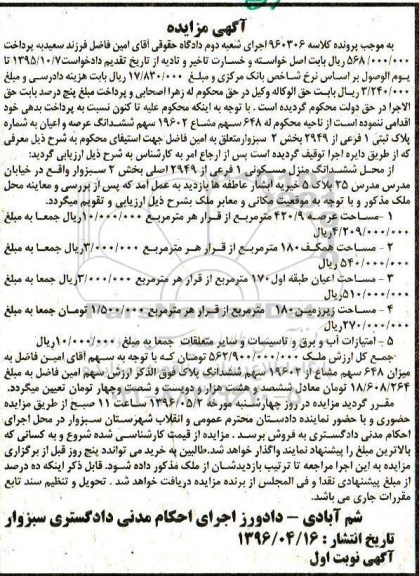 آگهی مزایده
به موجب پرونده کلاسه ۹۶۰۳۰۶ اجرای شعبه دوم دادگاه حقوقی آقای امین فاضل فرزند سعید به پرداخت
۵۶۸/۰۰۰/۰۰۰ ریال بابت اصل خواسته و خسارت تاخیر و تادیه از تاریخ تقدیم دادخواست ۱۳۹۵/۱۰/۷ تا
یوم الوصول بر اساس نرخ شاخص بانک مرکزی و مبلغ ۱۷/۸۳۰/۰۰۰ ریال بابت هزینه دادرسی و مبلغ
۳/۲۴۰/۰۰۰ ریال بابت حق الوکاله وکیل در حق محکوم له زهرا اصحابی و پرداخت مبلغ پنج درصد بابت حق
الاجرا در حق دولت محکوم گردیده است . با توجه به اینکه محکوم علیه تا کنون نسبت به پرداخت بدهی خود
اقدامی ننموده است از ناحیه محکوم له ۶۴۸ سهم مشاع ۱۹۶۰۲ سهم ششدانگ عرصه و اعیان به شماره
پلاک ثبتی ۱ فرعی از ۲۹۴۹ بخش ۲ سبزوار متعلق به امین فاضل جهت استیفای محکوم به شرح ذیل معرفی
که از طریق دایره اجرا توقیف گردیده است پس از ارجاع امر به کارشناس به شرح ذیل ارزیابی گردید:
از محل ششدانگ منزل مسکونی ۱ فرعی از ۲۹۴۹ اصلی بخش ۲ سبزوار واقع در خیابان
مدرس مدرس ۲۵ پلاک ۵ خیریه آبشار عاطفه ها بازدید به عمل آمد که پس از بررسی و معاینه محل
ملک مذکور و با توجه به موقعیت مکانی و معابر ملک بشرح ذیل ارزیابی و تقویم میگردد.
۱ -مساحت عرصه ۴۲۰/۹ مترمربع از قرار هر مترمربع ۱۰/۰۰۰/۰۰۰ ریال جمعا به مبلغ
۴/۲۰۹/۰۰۰/۰۰۰ ریال
۲ - مساحت همکف ۱۸۰ مترمربع از قرار هر مترمربع ۳/۰۰۰/۰۰۰ ریال جمعا به مبلغ
۵۴۰/۰۰۰/۰۰۰ ریال
۳ - مساحت اعیان طبقه اول ۱۷۰ مترمربع از قرار هر مترمربع ۳/۰۰۰/۰۰۰ ریال جمعا به مبلغ
۵۱۰/۰۰۰/۰۰۰ ریال
۴ - مساحت زیرزمین ۱۸۰ مترمربع از قرار هر مترمربع ۱/۵۰۰/۰۰۰ تومان جمعا به مبلغ
۲۷۰/۰۰۰/۰۰۰ ریال
۵ - امتیازات آب و برق و تاسیسات و سایر متعلقات جمعا به مبلغ ۱۰۰/۰۰۰/۰۰۰ ریال
جمع کل ارزش ملک ۵۶۲/۹۰۰/۰۰۰/۰۰۰ تومان که با توجه به سهم آقای امین فاضل به
میزان ۶۴۸ سهم مشاع از ۱۹۶۰۲ سهم ششدانگ پلاک فوق الذکر ارزش سهم امین فاضل به مبلغ
۱۸/۶۰۸/۲۶۴ تومان معادل ششصد و هشت هزار و دویست و شصت وچهار تومان تعیین میگردد.
مقرر گردید مزایده در روز چهارشنبه مورخه ۱۳۹۶/۰۵/۲ ساعت ۱۱ صبح از طریق مزایده
حضوری و با حضور نماینده دادستان محترم عمومی و انقلاب شهرستان سبزوار در محل اجرای
احکام مدنی دادگستری به فروش برسد . مزایده از قیمت کارشناسی شده شروع و به کسانی که
بالاترین مبلغ را پیشنهاد نمایند واگذار خواهد شد.طالبین به خرید می توانند پنج روز قبل از برگزاری
مزایده به این اجرا مراجعه تا ترتیب بازدیدشان از ملک مذکور داده شود. قابل ذکر اینکه ده درصد
از مبلغ پیشنهادی نقدا و فی المجلس از برنده مزایده دریافت خواهد شد . تحویل و تنظیم سند تابع
مقررات جاری می باشد.
شم آبادی – دادورز اجرای احکام مدنی دادگستری سبزوار
تاریخ انتشار : ۱۳۹۶/۰۴/۱۶
آگهی نوبت اول